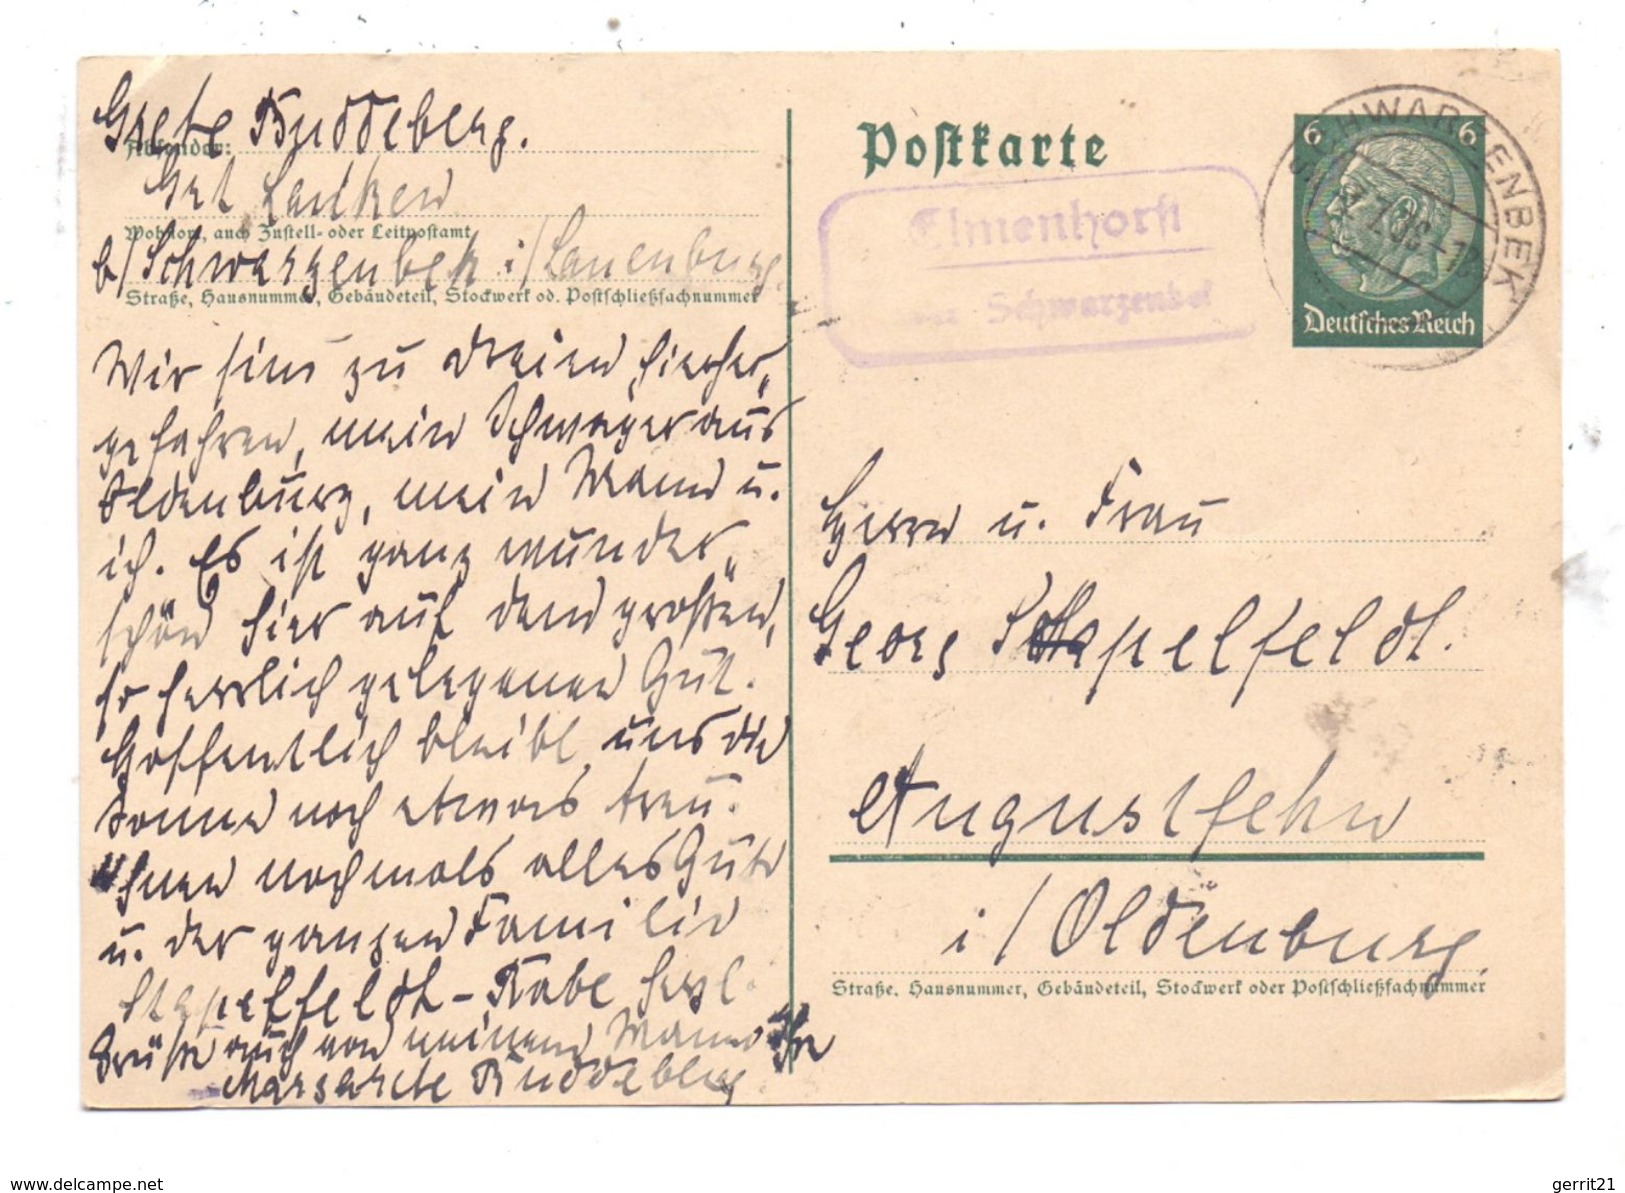 Grete Buddeberg.
Absender:
Gut Lanken
Wohnort, auch Zustell- oder Leitpostamt
b/Schwarzenbek i/Lauenburg
Straße, Hausnummer, Gebäudeteil, Stockwerk od. Postschließfachnummer
Wir sind zu dreien hierher„
gefahren, mein Schwager aus
Oldenburg, mein Mann u.
ich. Es ist ganz wunder„
schön hier auf dem großen,
so herrlich gelegenen Gut.
Hoffentlich bleibt uns die
Sonne noch etwas treu.
Ihnen nochmals alles Gute
u. der ganzen Familie
Stapelfeldt - Rabe herzl.
Grüße auch von meinem Manne Ihre
Margarete Buddeberg
Postkarte
Elmenhorst
Schwarzenbek
SCHWARZENBEK
6 6
Deutsches Reich
Herrn u. Frau
Georg Stapelfeldt.
Augustfehn
i/Oldenburg.
Straße, Hausnummer, Gebäudeteil, Stockwerk oder Postschließfachnummer
www.delcampe.net
gerrit21